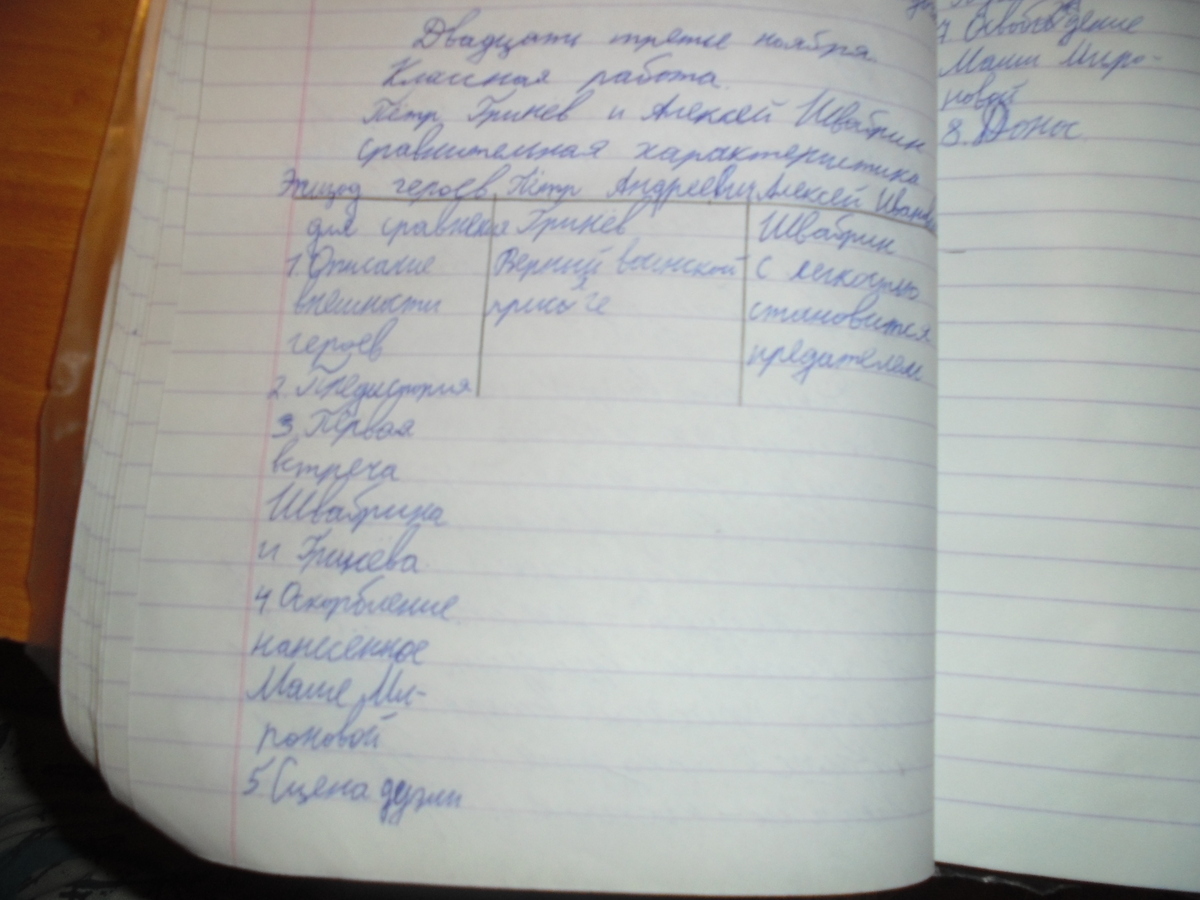 Двадцать третье ноября.
Классная работа.
Пётр Гринёв и Алексей Швабрин
сравнительная характеристика
Эпизод героев Пётр Андреевич Алексей Иванови
для сравнения Гринёв Швабрин
1. Описание Верный воинской С легкостью
внешности присяге становится
героев предателем
2. Предистория
3. Первая
встреча
Швабрина
и Гринева
4 Оскорбление
нанесенное
Маше Ми-
роновой
5 Сцена дуэли
7 Освобождение
Маши Миро-
новой
8. Донос